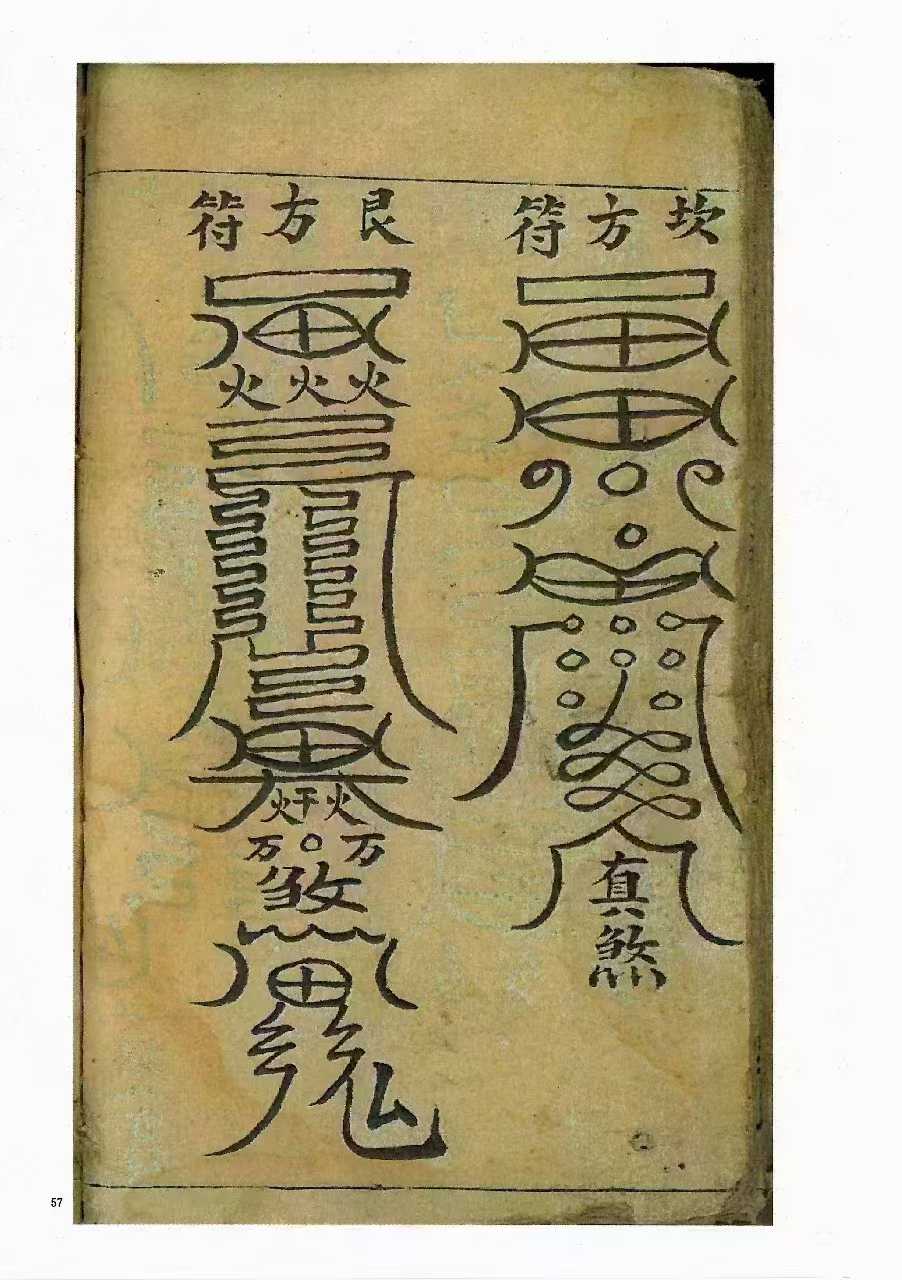 坎方符
真
煞
艮方符
火火火
火干火
万万
煞
57